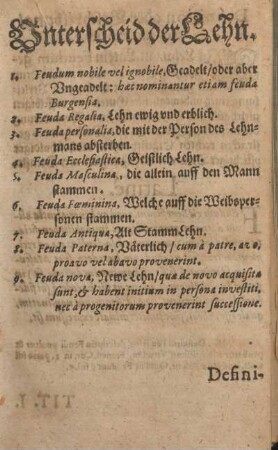 Unterscheid der Lehn.
1. Feudum nobile vel ignobile, Geadelt/oder aber
Vngeadelt: hæc nominantur etiam feuda
Burgensia.
2. Feuda Regalia, Lehn ewig vnd erblich.
3. Feuda personalia, die mit der Person des Lehn-
mans absterben.
4. Feuda Ecclesiastica, Geistlich Lehn.
5. Feuda Masculina, die allein auff den Mann
stammen.
6. Feuda Fœminina, Welche auff die Weibsper-
sonen stammen.
7. Feuda Antiqua, Alt Stamm Lehn.
8. Feuda Paterna, Väterlich/ cum à patre, avo,
proavo vel abavo provenerint.
9. Feuda nova, Newe Lehn/ quæ de novo acquisita
sunt, & habent initium in persona investiti,
nec à progenitorum provenerint successione.
Defini-